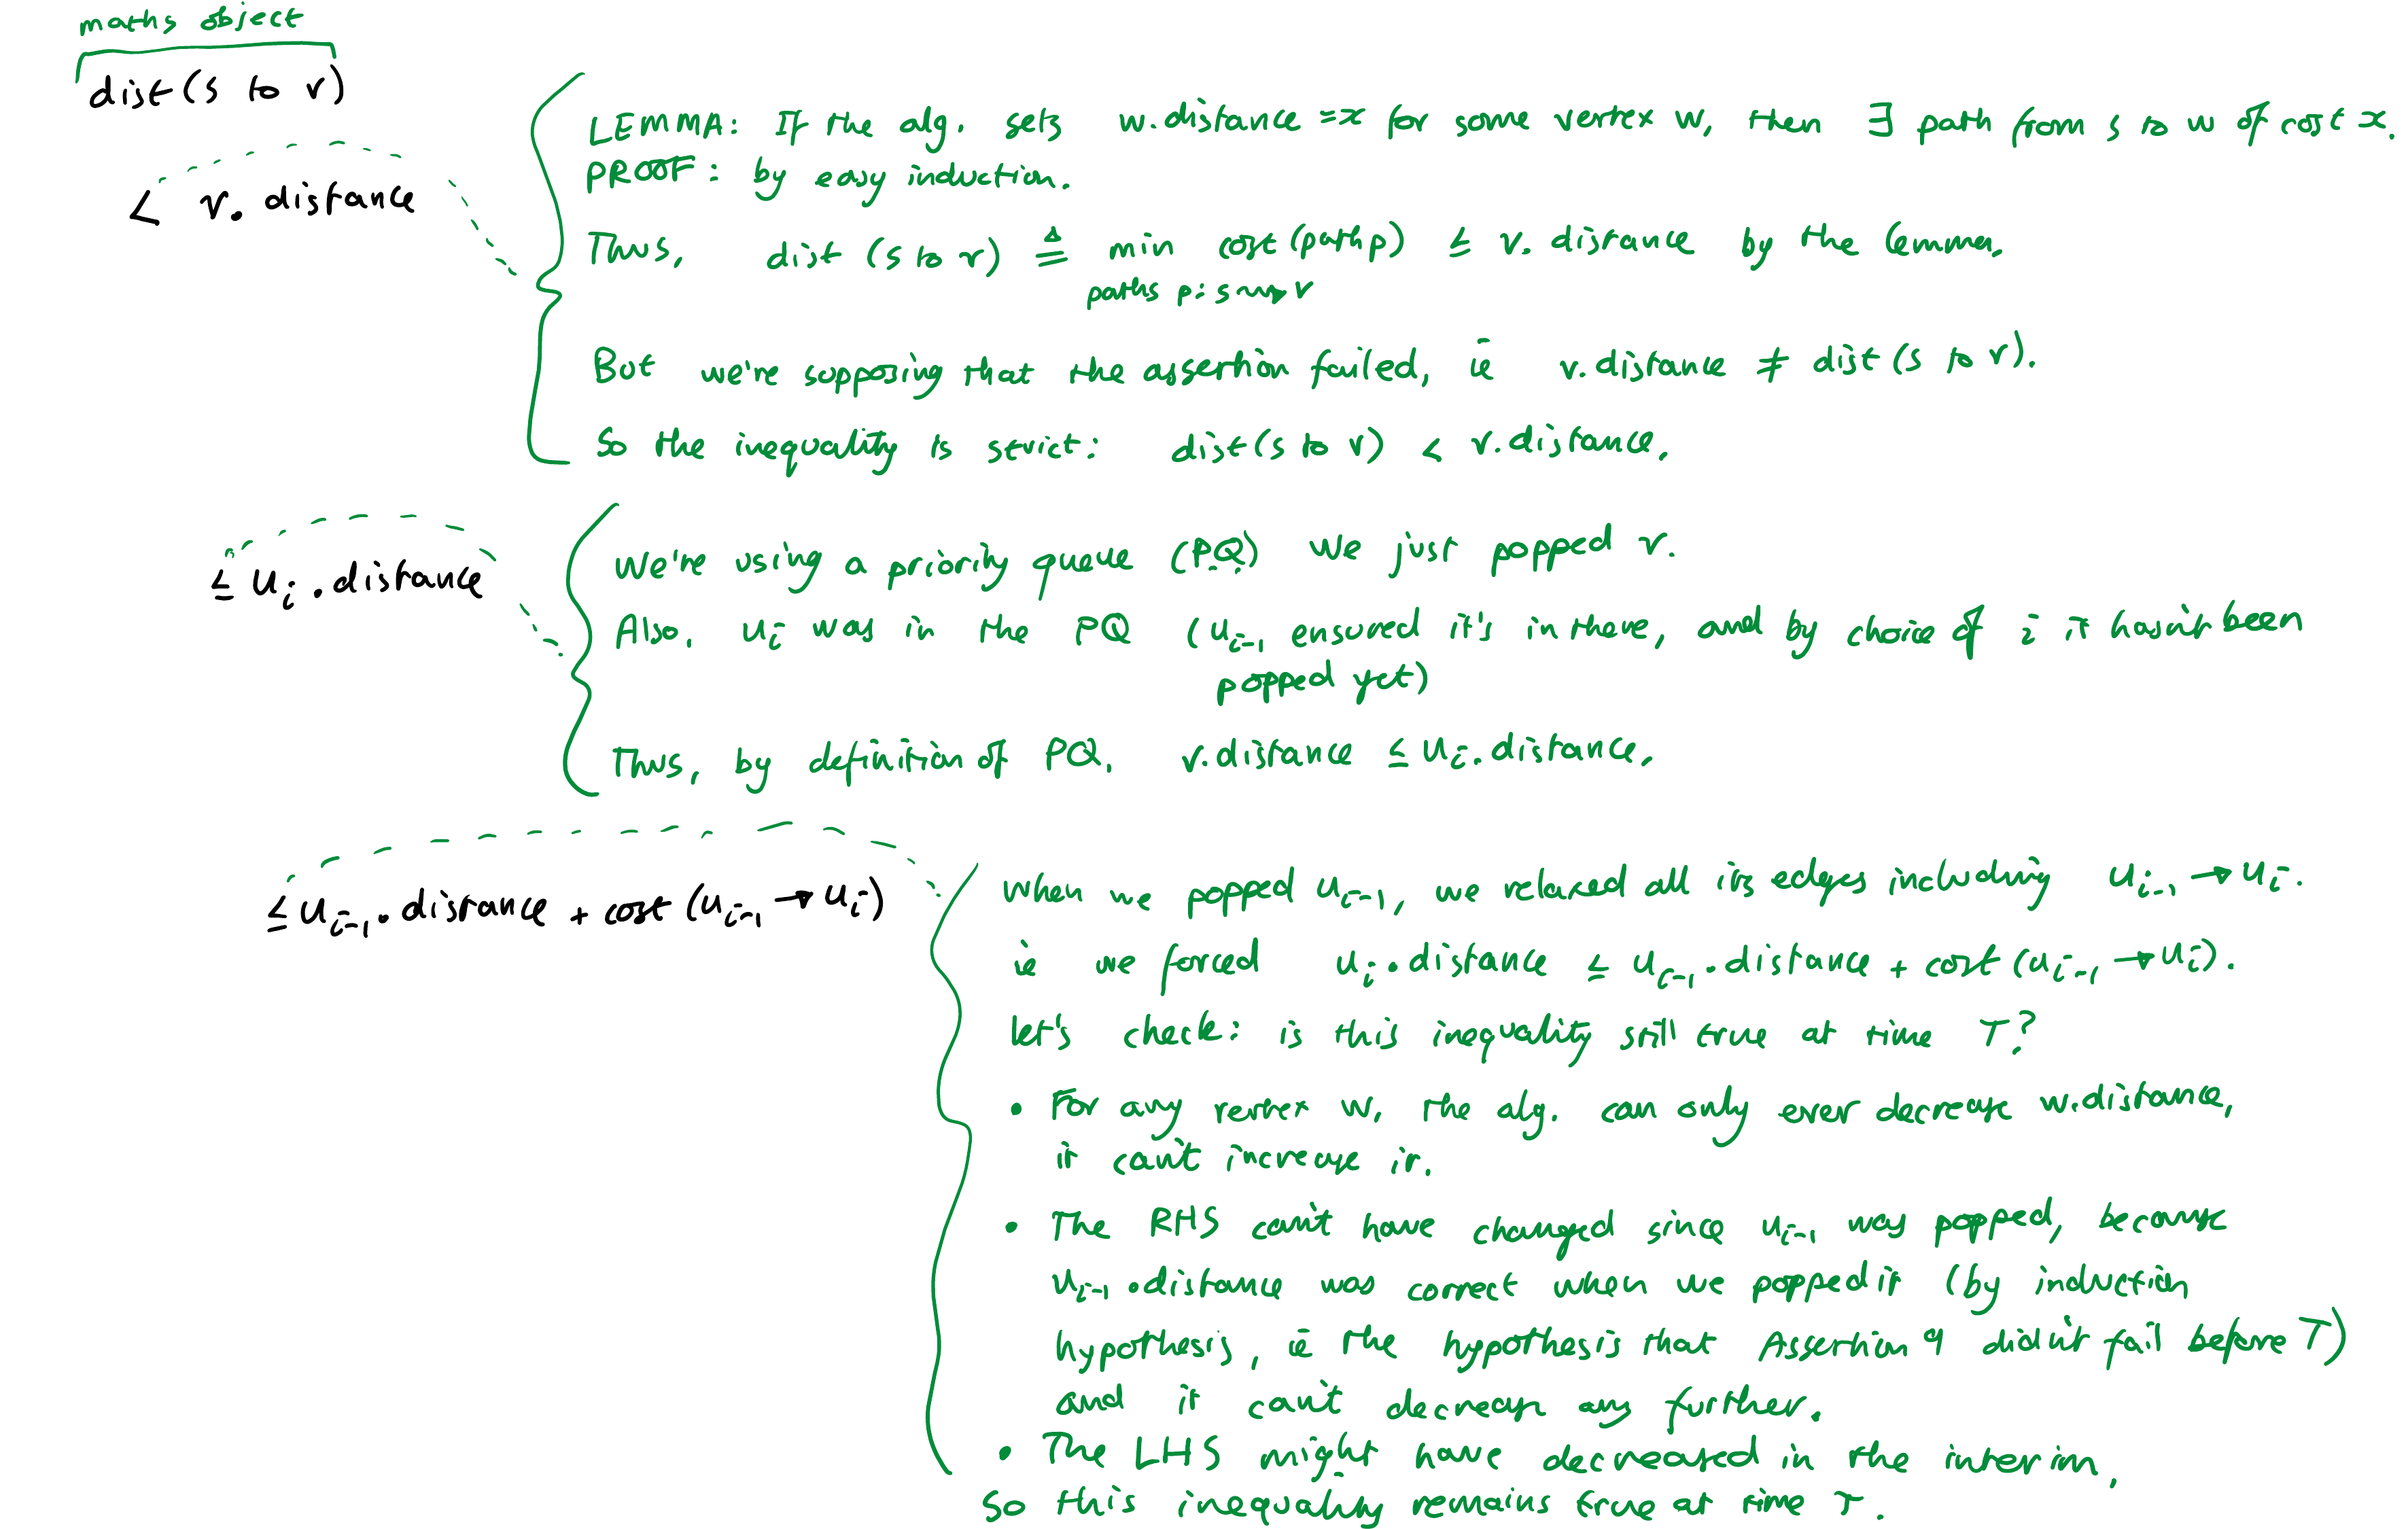 maths object
dist(s to v)
< v.distance
LEMMA: If the alg. sets w.distance = x for some vertex w, then ∃ path from s to w of cost x.
PROOF: by easy induction.
Thus, dist(s to v) ≜ min cost(path p) ≤ v.distance by the lemma.
paths p: s ⇝ v
But we're supposing that the assertion failed, ie v.distance ≠ dist(s to v).
So the inequality is strict: dist(s to v) < v.distance.
≤ uᵢ.distance
We're using a priority queue (PQ) We just popped v.
Also, uᵢ was in the PQ (uᵢ₋₁ ensured it's in there, and by choice of i it hasn't been
popped yet)
Thus, by definition of PQ, v.distance ≤ uᵢ.distance.
≤ uᵢ₋₁.distance + cost(uᵢ₋₁ → uᵢ)
When we popped uᵢ₋₁, we relaxed all its edges including uᵢ₋₁ → uᵢ.
ie we forced uᵢ.distance ≤ uᵢ₋₁.distance + cost(uᵢ₋₁ → uᵢ).
Let's check: is this inequality still true at time T?
• For any vertex w, the alg. can only ever decrease w.distance,
it can't increase it.
• The RHS can't have changed since uᵢ₋₁ was popped, because
uᵢ₋₁.distance was correct when we popped it (by induction
hypothesis, ie the hypothesis that Assertion 9 didn't fail before T)
and it can't decrease any further.
• The LHS might have decreased in the interim.
So this inequality remains true at time T.